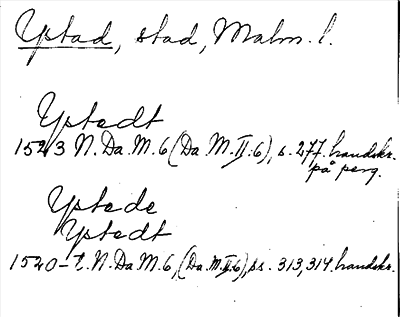 Ystad, stad, Malm. l.
Ystedt
1523 N. Da. M. 6 (Da. M. II: 6), s. 277. handskr.
på perg.
Ystede
Ystedt
1520-t. N. Da. M. 6, (Da. M. II: 6), ss. 313, 314. handskr.